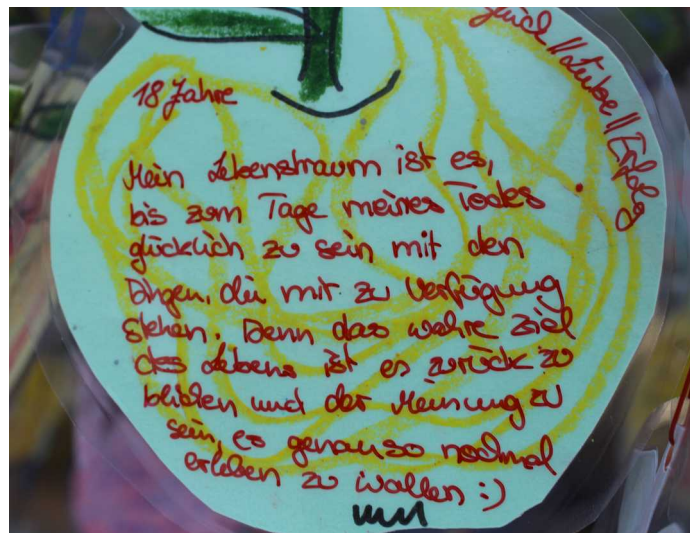 Glück // Liebe // Erfolg
18 Jahre
Mein Lebenstraum ist es,
bis zum Tage meines Todes
glücklich zu sein mit den
Dingen, die mit zu Verfügung
stehen. Denn das wahre Ziel
des Lebens ist es zurück zu
blicken und der Meinung zu
sein, es genauso nochmal
erleben zu wollen :)